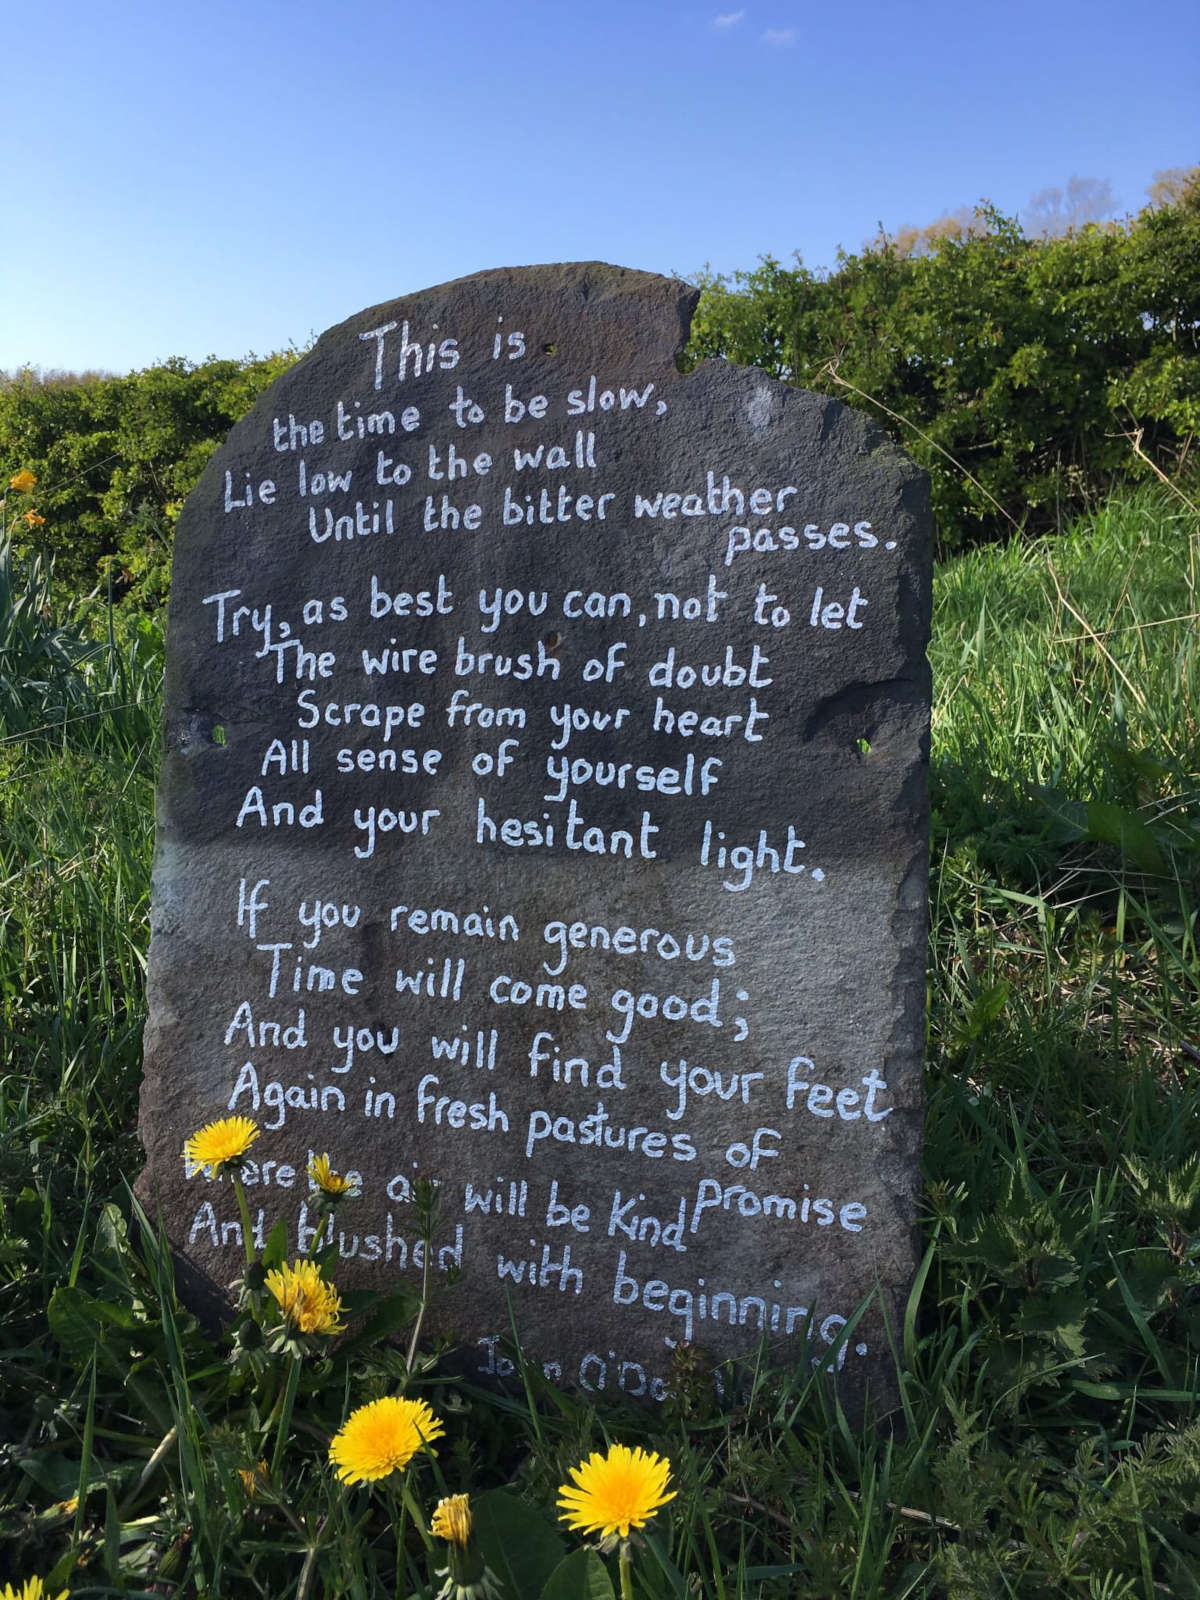 This is
the time to be slow,
Lie low to the wall
Until the bitter weather
passes.
Try, as best you can, not to let
The wire brush of doubt
Scrape from your heart
All sense of yourself
And your hesitant light.
If you remain generous
Time will come good;
And you will find your feet
Again in fresh pastures of
promise
Where the air will be kind
And blushed with beginning.
John O'Do